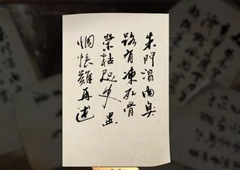 朱門酒肉臭
路有凍死骨
榮枯咫尺異
惆悵難再述